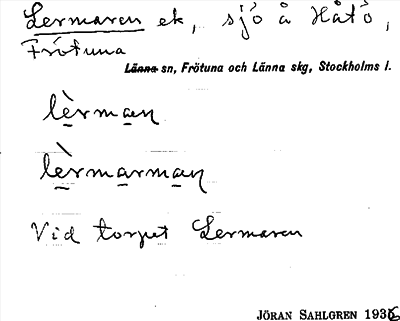 Lermaren ek, sjö å Håtö,
Frötuna
Länna sn, Frötuna och Länna skg, Stockholms l.
lèrmaṉ
lèrmarmaṉ
Vid torpet Lermaren
JÖRAN SAHLGREN 1936